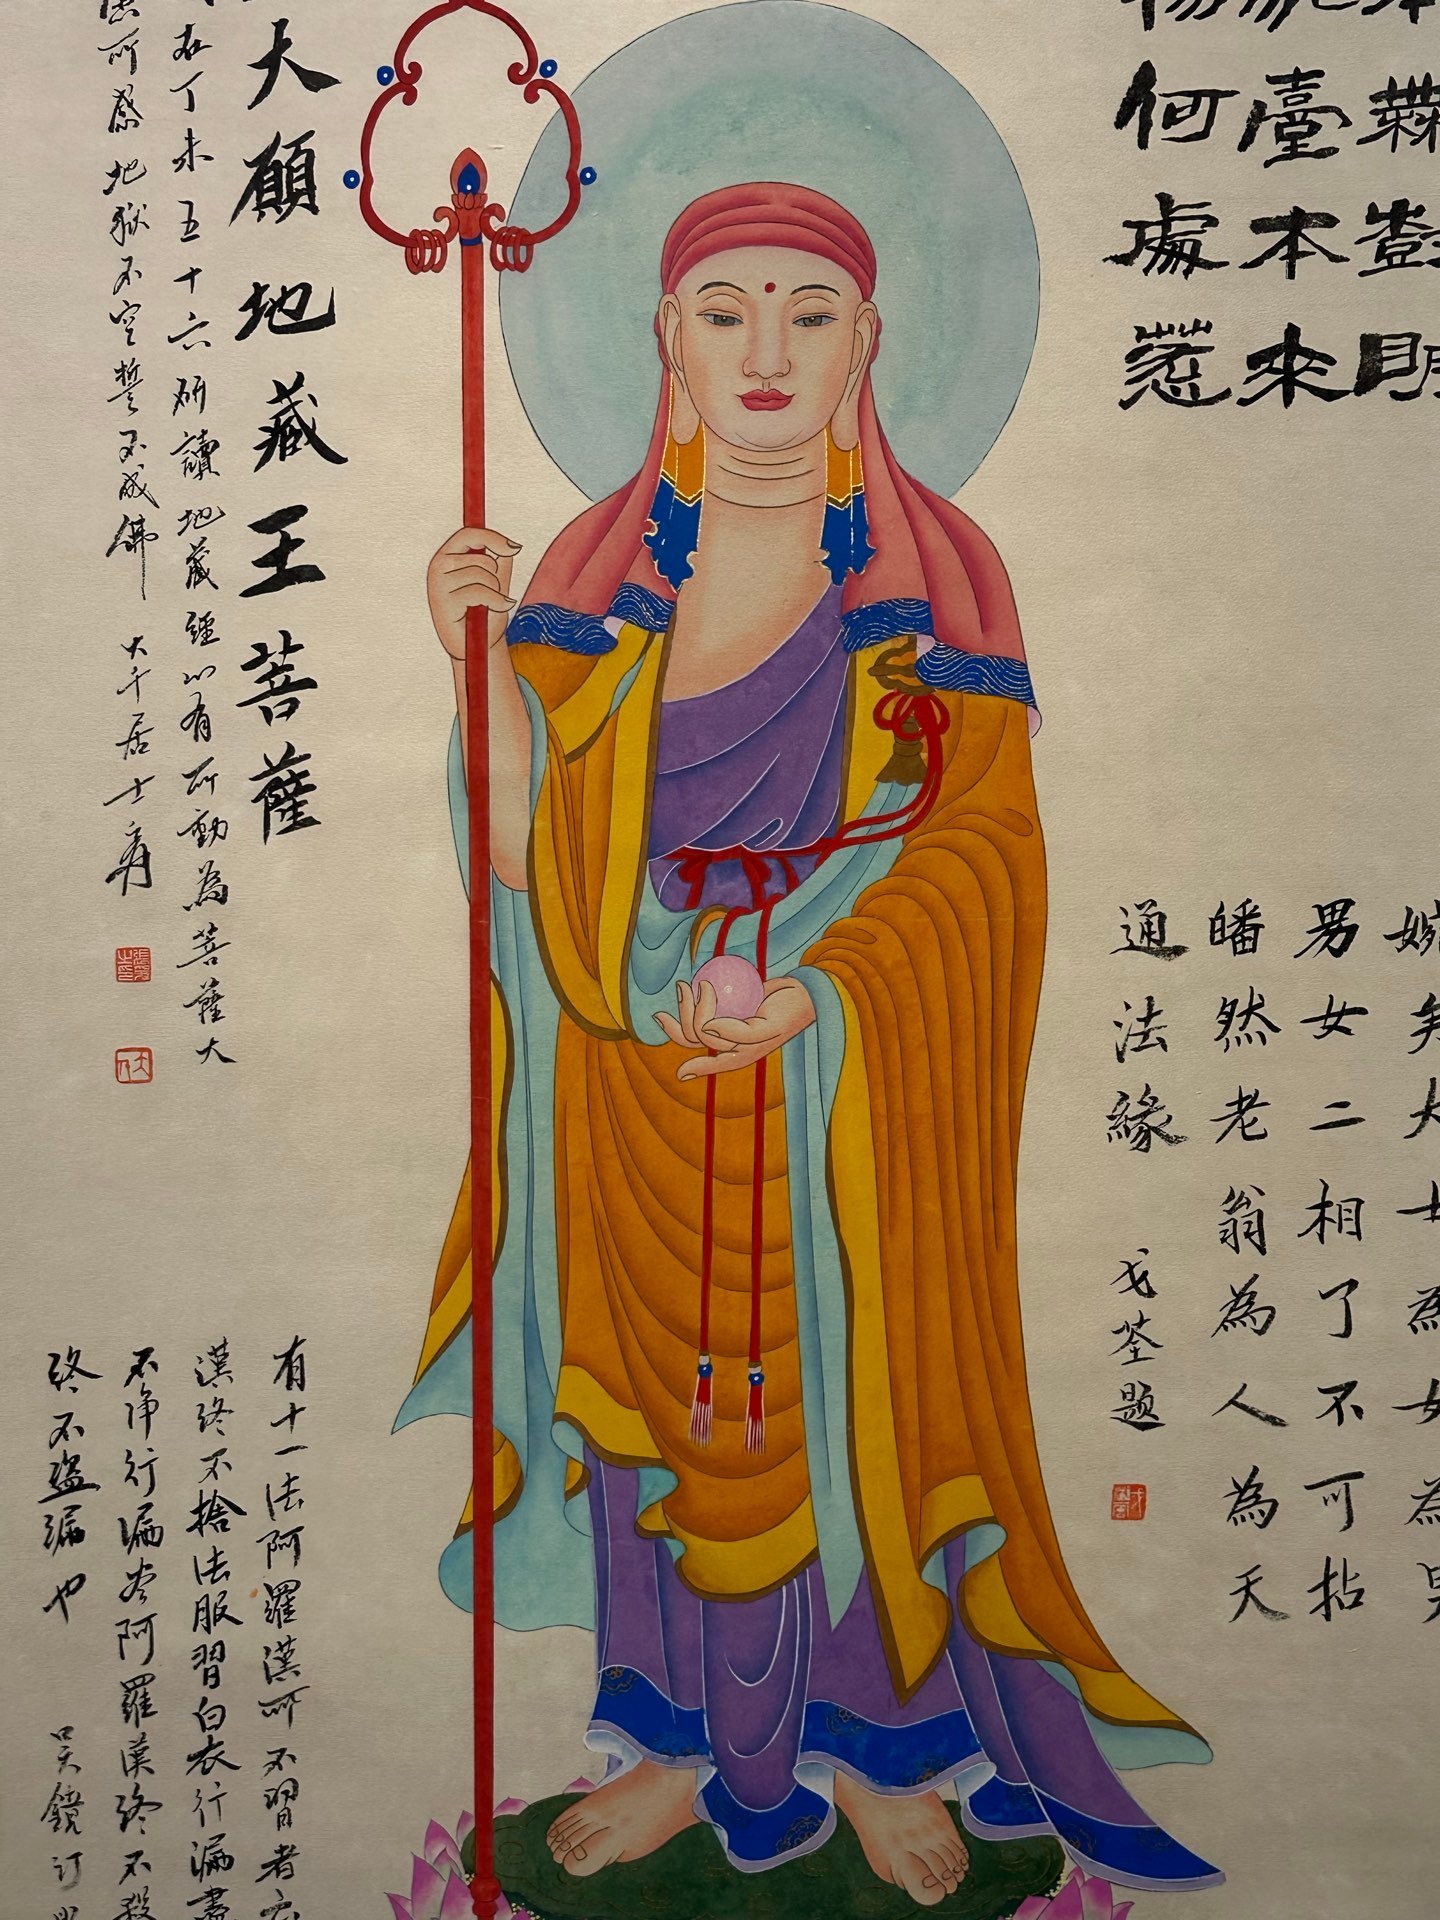 大願地藏王菩薩
在丁未五十六研讀地藏經以有所動為菩薩大
所感地獄不空誓不成佛
大千居士爰
臺本來
何處惹
男女二相了不可拈
皤然老翁為人為天
通法緣
戈荃題
有十一法阿羅漢所不習者
漢終不捨法服習白衣行漏盡
不淨行漏盡阿羅漢終不殺
終不盜漏也
吳鏡汀